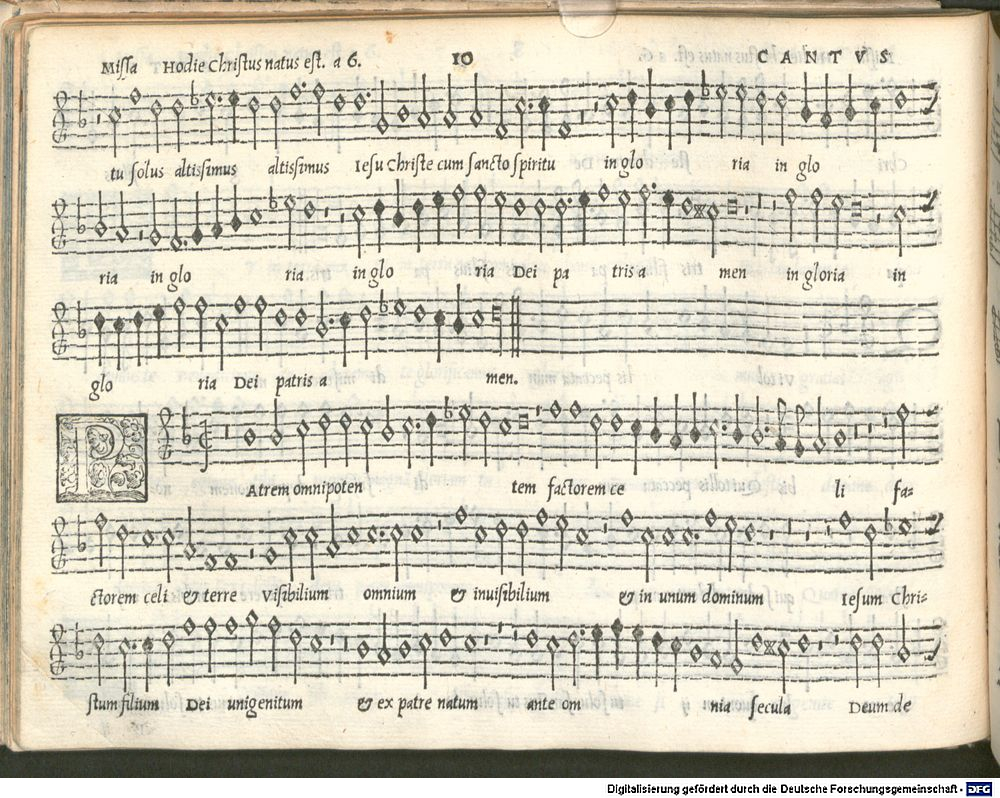 Missa Hodie Christus natus est. a 6. 10 CANTVS
tu solus altissimus altissimus Iesu Christe cum sancto spiritu in glo ria in glo
ria in glo ria in glo ria Dei pa tris a men in gloria in
glo ria Dei patris a men.
PAtrem omnipoten tem factorem ce li fa-
ctorem celi & terre visibilium omnium & inuisibilium & in unum dominum Iesum Chri-
stum filium Dei unigenitum & ex patre natum ante om nia secula Deum de
Digitalisierung gefördert durch die Deutsche Forschungsgemeinschaft - DFG